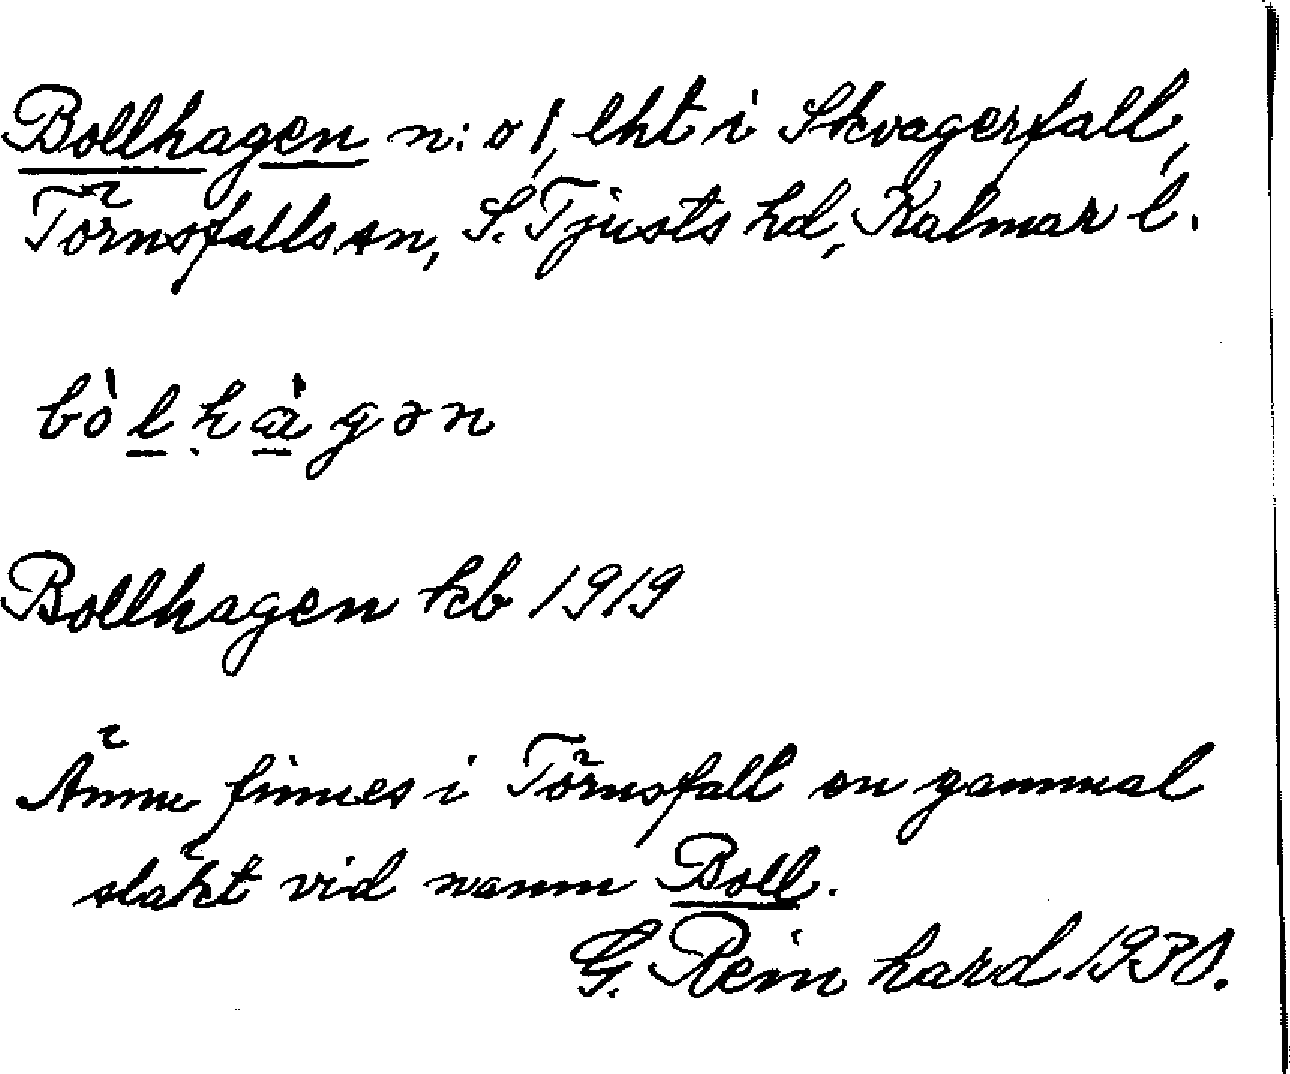 Bollhagen n:o 1, lht i Skvagerfall,
Törnsfalls sn, S. Tjusts hd, Kalmar l.
bòlhàgən
Bollhagen kb 1919
Ännu finnes i Törnsfall en gammal
släkt vid namn Boll.
G. Reinhard 1930.